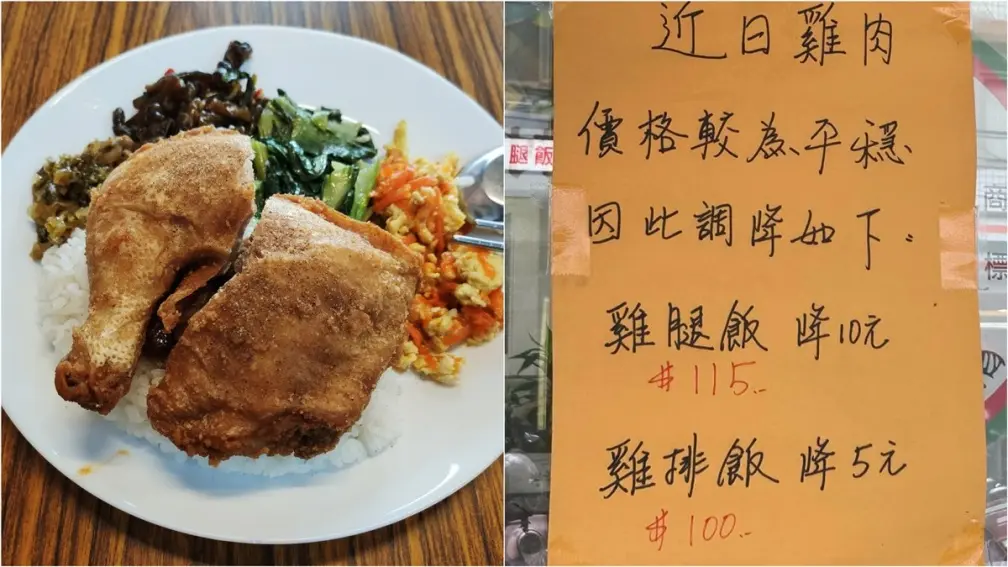 近日雞肉
價格較為平穩
因此調降如下:
雞腿飯 降10元
#115..
雞排飯 降5元
#100..
腿飯
商
標